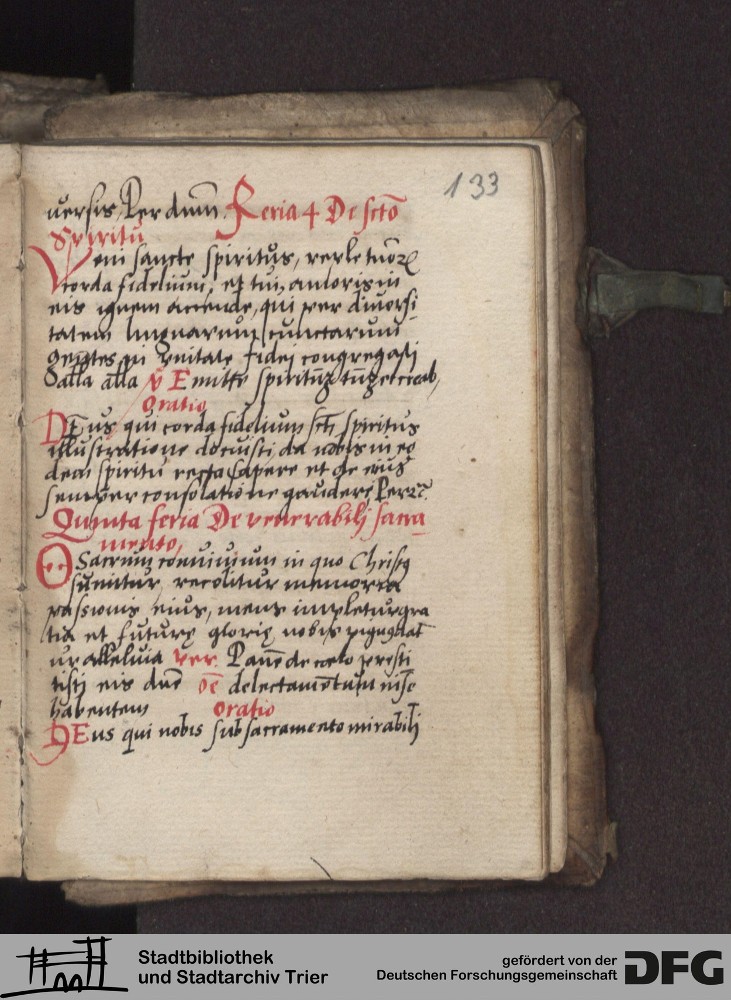 133
uersis, Per dnm̄ Feria 4 De sctō
Spiritu
Veni sancte spiritus, reple tuōꝝ
corda fidelium, et tui amoris in
eis ignem accende, qui per diuersi
tatem linguarum cunctarum
gentes in vnitate fidei congregasti
alla alla v̄ Emitte spiritū tuū et creab,
Oratio
Deus qui corda fidelium scti spiritus
illustratione docuisti, da nobis in eo
dem spiritu recta sapere et de eius
semper consolatione gaudere, Per
Quinta feria De venerabilj sacra
mento,
O Sacrum conuiuium in quo Christꝰ
sumitur, recolitur memoria
passionis eius, mens impletur gra
tia et futurę glorię nobis pignꝰ dat̄
ur alleluia ver. Panē de cœlo presti
tisti eis dnē oē delectamētum in se
habentem Oratio
DEus qui nobis sub sacramento mirabilj
Stadtbibliothek
und Stadtarchiv Trier
gefördert von der
Deutschen Forschungsgemeinschaft
DFG